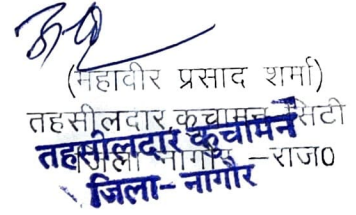 (महावीर प्रसाद शर्मा)
तहसीलदार, कुचामन सिटी
जिला नागौर -राज0
तहसीलदार कुचामन
जिला- नागौर